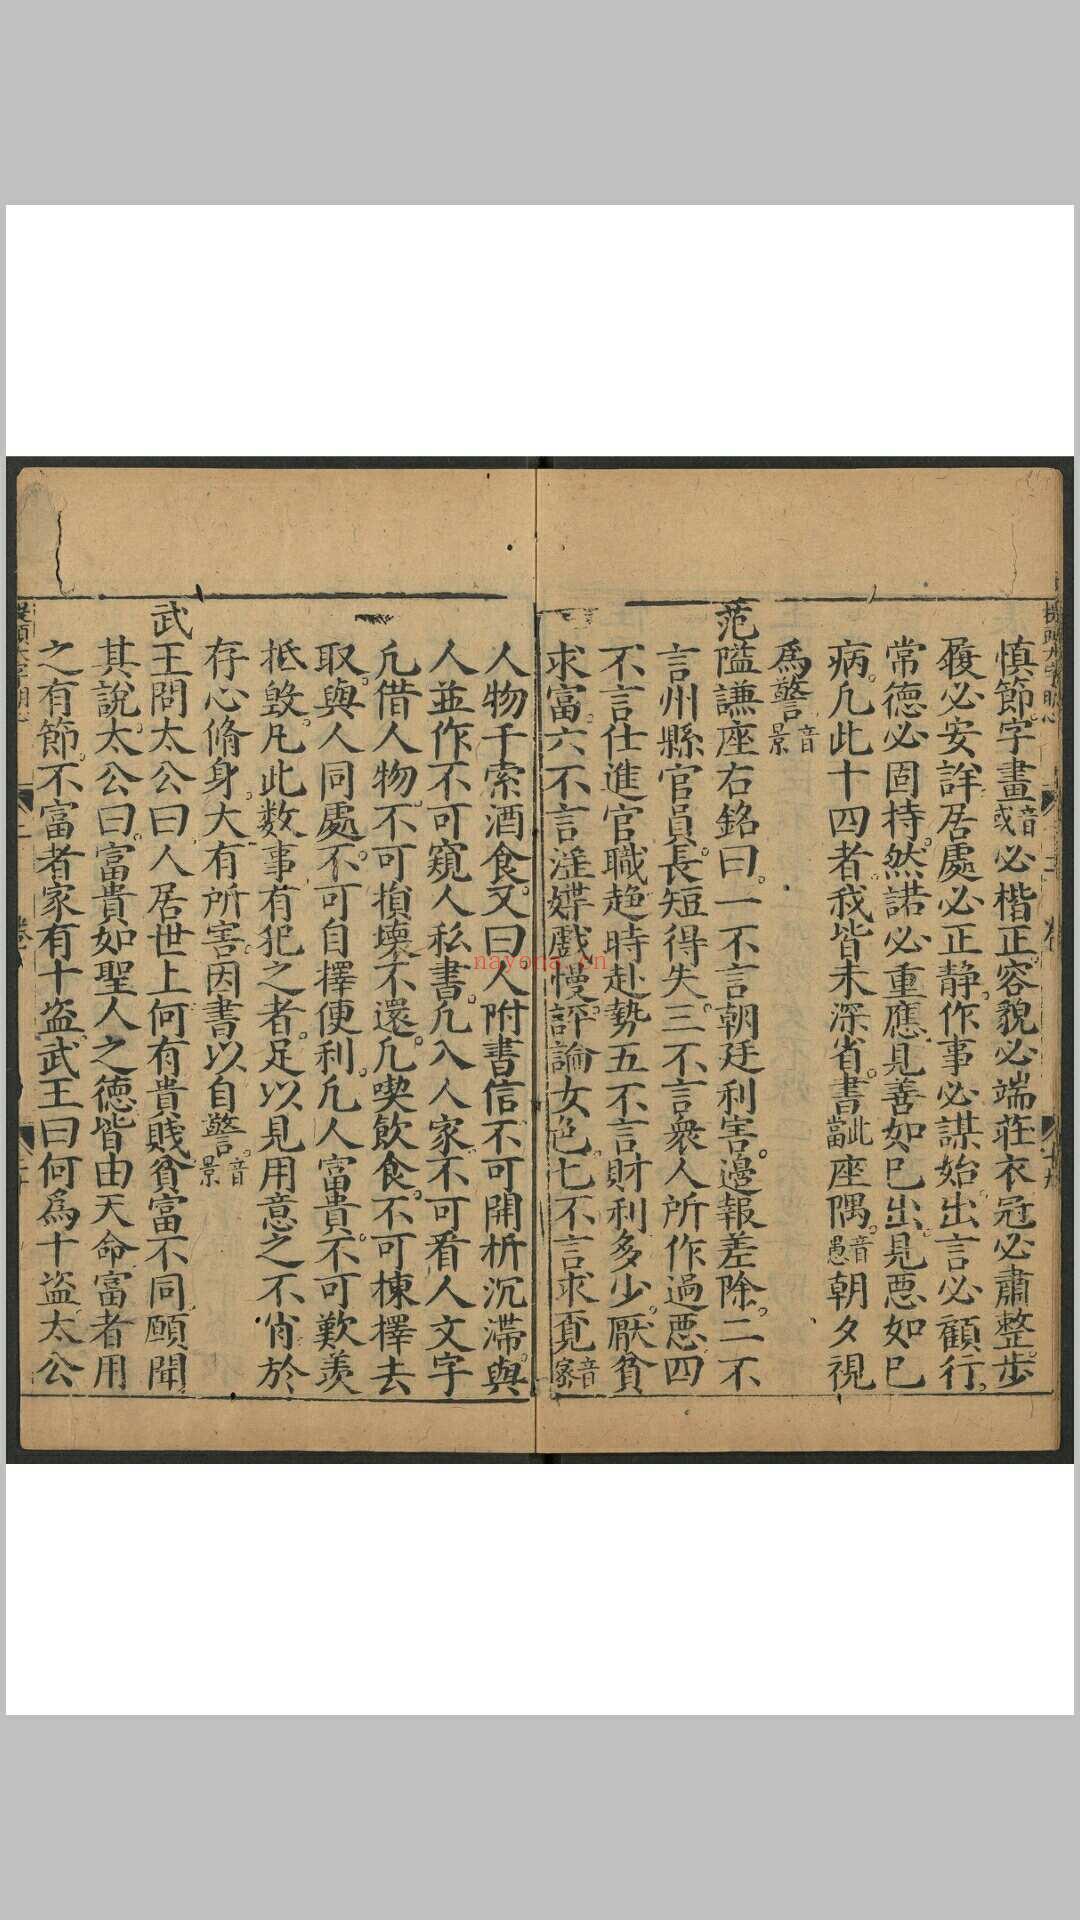 慎節。字畫音或必楷正。容貌必端荘衣冠必肅整。步
履必安詳。居處必正静。作事必謀始。出言必顧行。
常徳必固持。然諾必重應。見善如已出。見悪如已
病。凢此十四者。我皆未深省。書此當座隅。音愚朝夕視
爲警音景
范隘謙座右銘曰。一不言朝廷利害。邉報差除。二不
言州縣官員。長短得失。三不言衆人所作過悪四
不言仕進官職趍時赴勢五不言財利多少。厭貧
求富。六不言滛媟戲慢。評論女色。七不言求覓音宻
人物干索酒食。又曰。人附書信。不可開柝沉滯。與
人並作。不可窺人私書。凢入人家。不可看人文字
凢借人物。不可損壞不還。凢喫飲食。不可棟擇去
取。與人同處。不可自擇便利。凢人富貴。不可歎羨
抵毀。凡此数事。有犯之者。足以見用意之不肖。於
存心脩身。大有所害。因書以自警。音景
武王問太公曰。人居世上。何有貴賎貧富不同。願聞
其說。太公曰。富貴如聖人之徳。皆由天命。富者用
之有節。不富者家有十盗。武王曰。何爲十盗。太公
nayona.cn